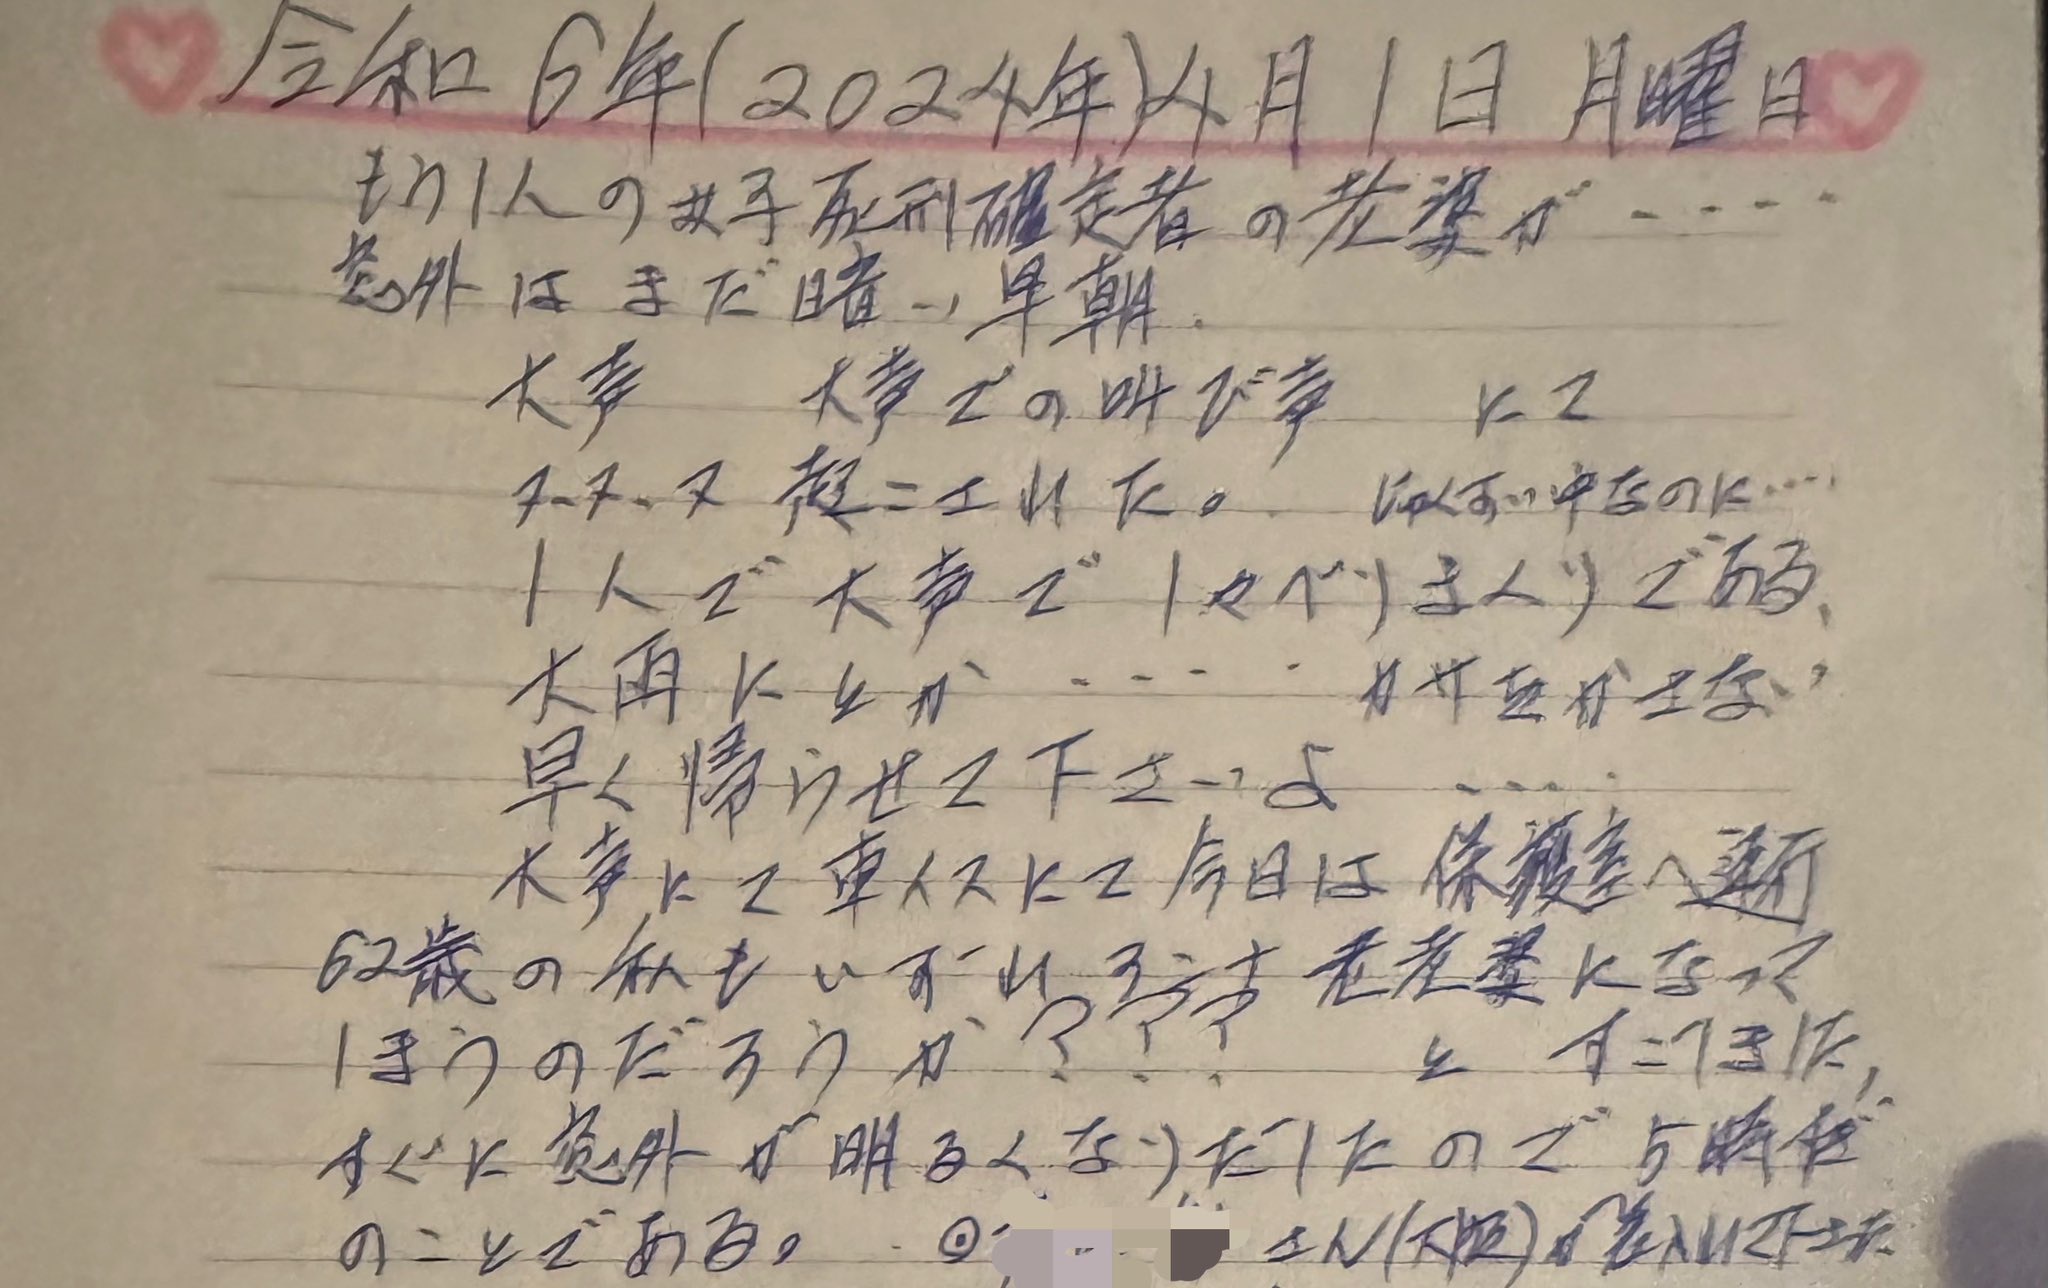 令和6年(2024年)4月1日 月曜日
もう1人の女子死刑確定者の老婆が‥‥
窓外はまだ暗い早朝.
大声 大声での叫び声 にて
ヌーヌーヌ 起こされた。 じゅくすい中なのに‥‥
1人で大声でしゃべりまくりである、
大雨にとか ‥‥ カサをかさない
早く帰らせて下さいよ ‥‥
大声にて車イスにて今日は保護室へ連行
62歳の私もいずれ 老老婆になって
しまうのだろうか??? と すごしました、
すぐに窓外が明るくなりだしたので5時だ
のことである。 ◎ さん(大阪)が差入れして下さった